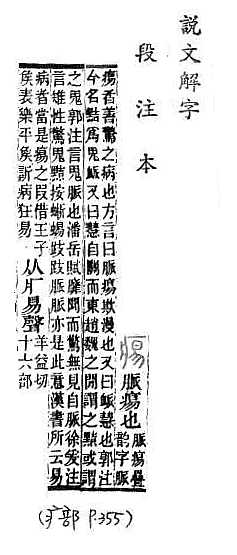 說文解字
段注本
痬 脈痬也 脈痬疊
韵字脈
痬者善驚之病也方言曰脈痬欺謾也又曰䘑慧也郭注
今名黠爲鬼䘑又曰慧自關而東趙魏之閒謂之黠或謂
之鬼郭注言鬼脈也潘岳賦靡聞而驚無見自脈徐爰注
言雉性驚鬼黠按蜥蜴跂跂脈脈亦是此意漢書所云易
病者當是痬之叚借王子
矦表樂平矦訢病狂易
从疒易聲
羊益切
十六部
(疒部 P.355)